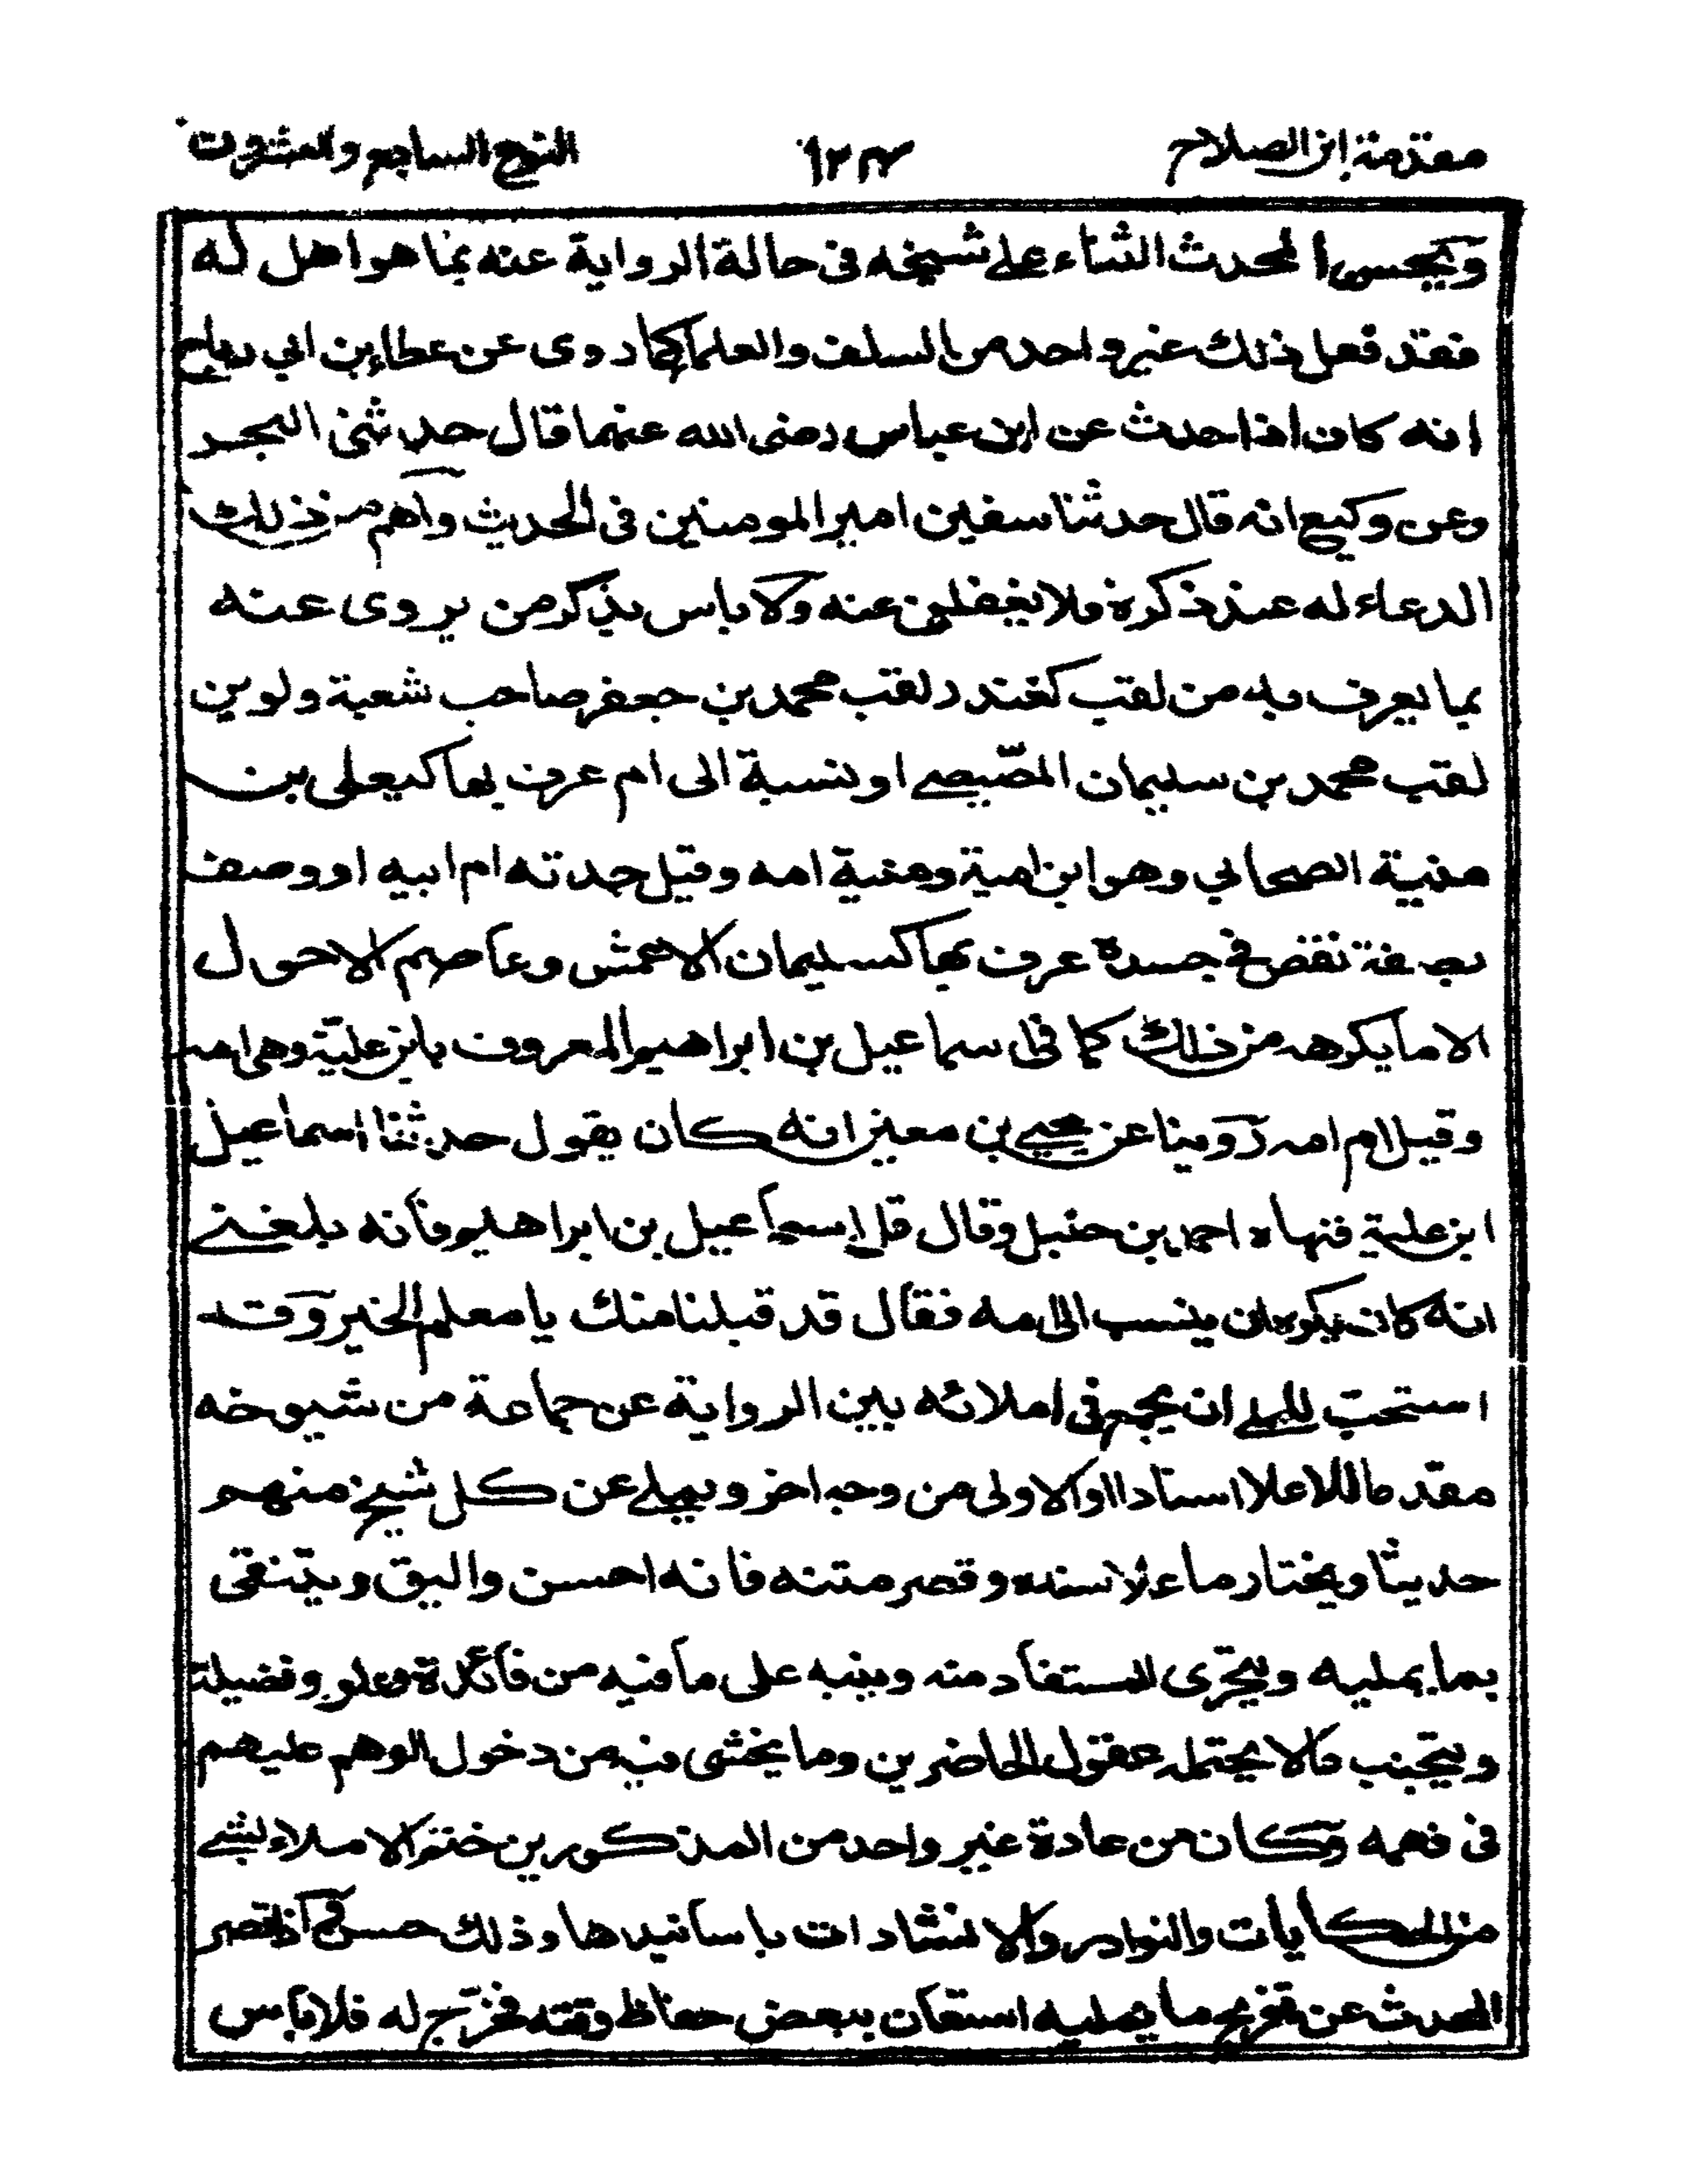 مقدمة ابن الصلاح ١٢٤ النوع السابع والعشرون
ويحسن المحدث الثناء على شيخه فى حالة الرواية عنه بما هو اهل له
فقد فعل ذلك غير واحد من السلف والعلماء كما روى عن عطاء بن ابي رباح
انه كان اذا حدث عن ابن عباس رضى الله عنهما قال حدثنى البحر
وعن وكيع انه قال حدثنا سفين امير المومنين فى الحديث واهم من ذلك
الدعاء له عند ذكره فلا يغفلن عنه ولا باس بذكر من يروى عنه
بما يعرف به من لقب كغندر لقب محمد بن جعفر صاحب شعبة ولوين
لقب محمد بن سليمان المصّيصے او نسبة الى ام عرف بها كيعلى بن
منية الصحابي وهو ابن امية ومنية امه وقيل جدته ام ابيه او وصف
بصفة نقص فى جسده عرف بها كسليمان الاعمش وعاصم الاحول
الا ما يكرهه من ذلك كما فى اسماعيل بن ابراهيم المعروف بابن علية وهى امه
وقيل ام امه روينا عن يحيے بن معين انه كان يقول حدثنا اسماعيل
ابن علية فنهاه احمد بن حنبل وقال قل اسماعيل بن ابراهيم فانه بلغنے
انه كان يكره ان ينسب الى امه فقال قد قبلنا منك يا معلم الخير وقد
استحبّ للمملے ان يجمع فى املائه بين الرواية عن جماعة من شيوخه
مقدما للاعلا اسنادا او الاولى من وجه اخر ويملے عن كل شيخ منهم
حديثا ويختار ما علا سنده وقصر متنه فانه احسن واليق وينتقى
بما يمليه ويتحرى المستفاد منه وينبه على ما فيه من فائدة وعلو وفضيلة
ويتجنب مالا يحتمله عقول الحاضرين وما يخشى فيه من دخول الوهم عليهم
فى فهمه وكان من عادة غير واحد من المذكورين ختم الاملاء بشے
من الحكايات والنوادر والانشادات باسانيدها وذلك حسن واذا قصر
المحدث عن تخريج ما يمليه استعان ببعض حفاظ وقته فخرّج له فلا باس